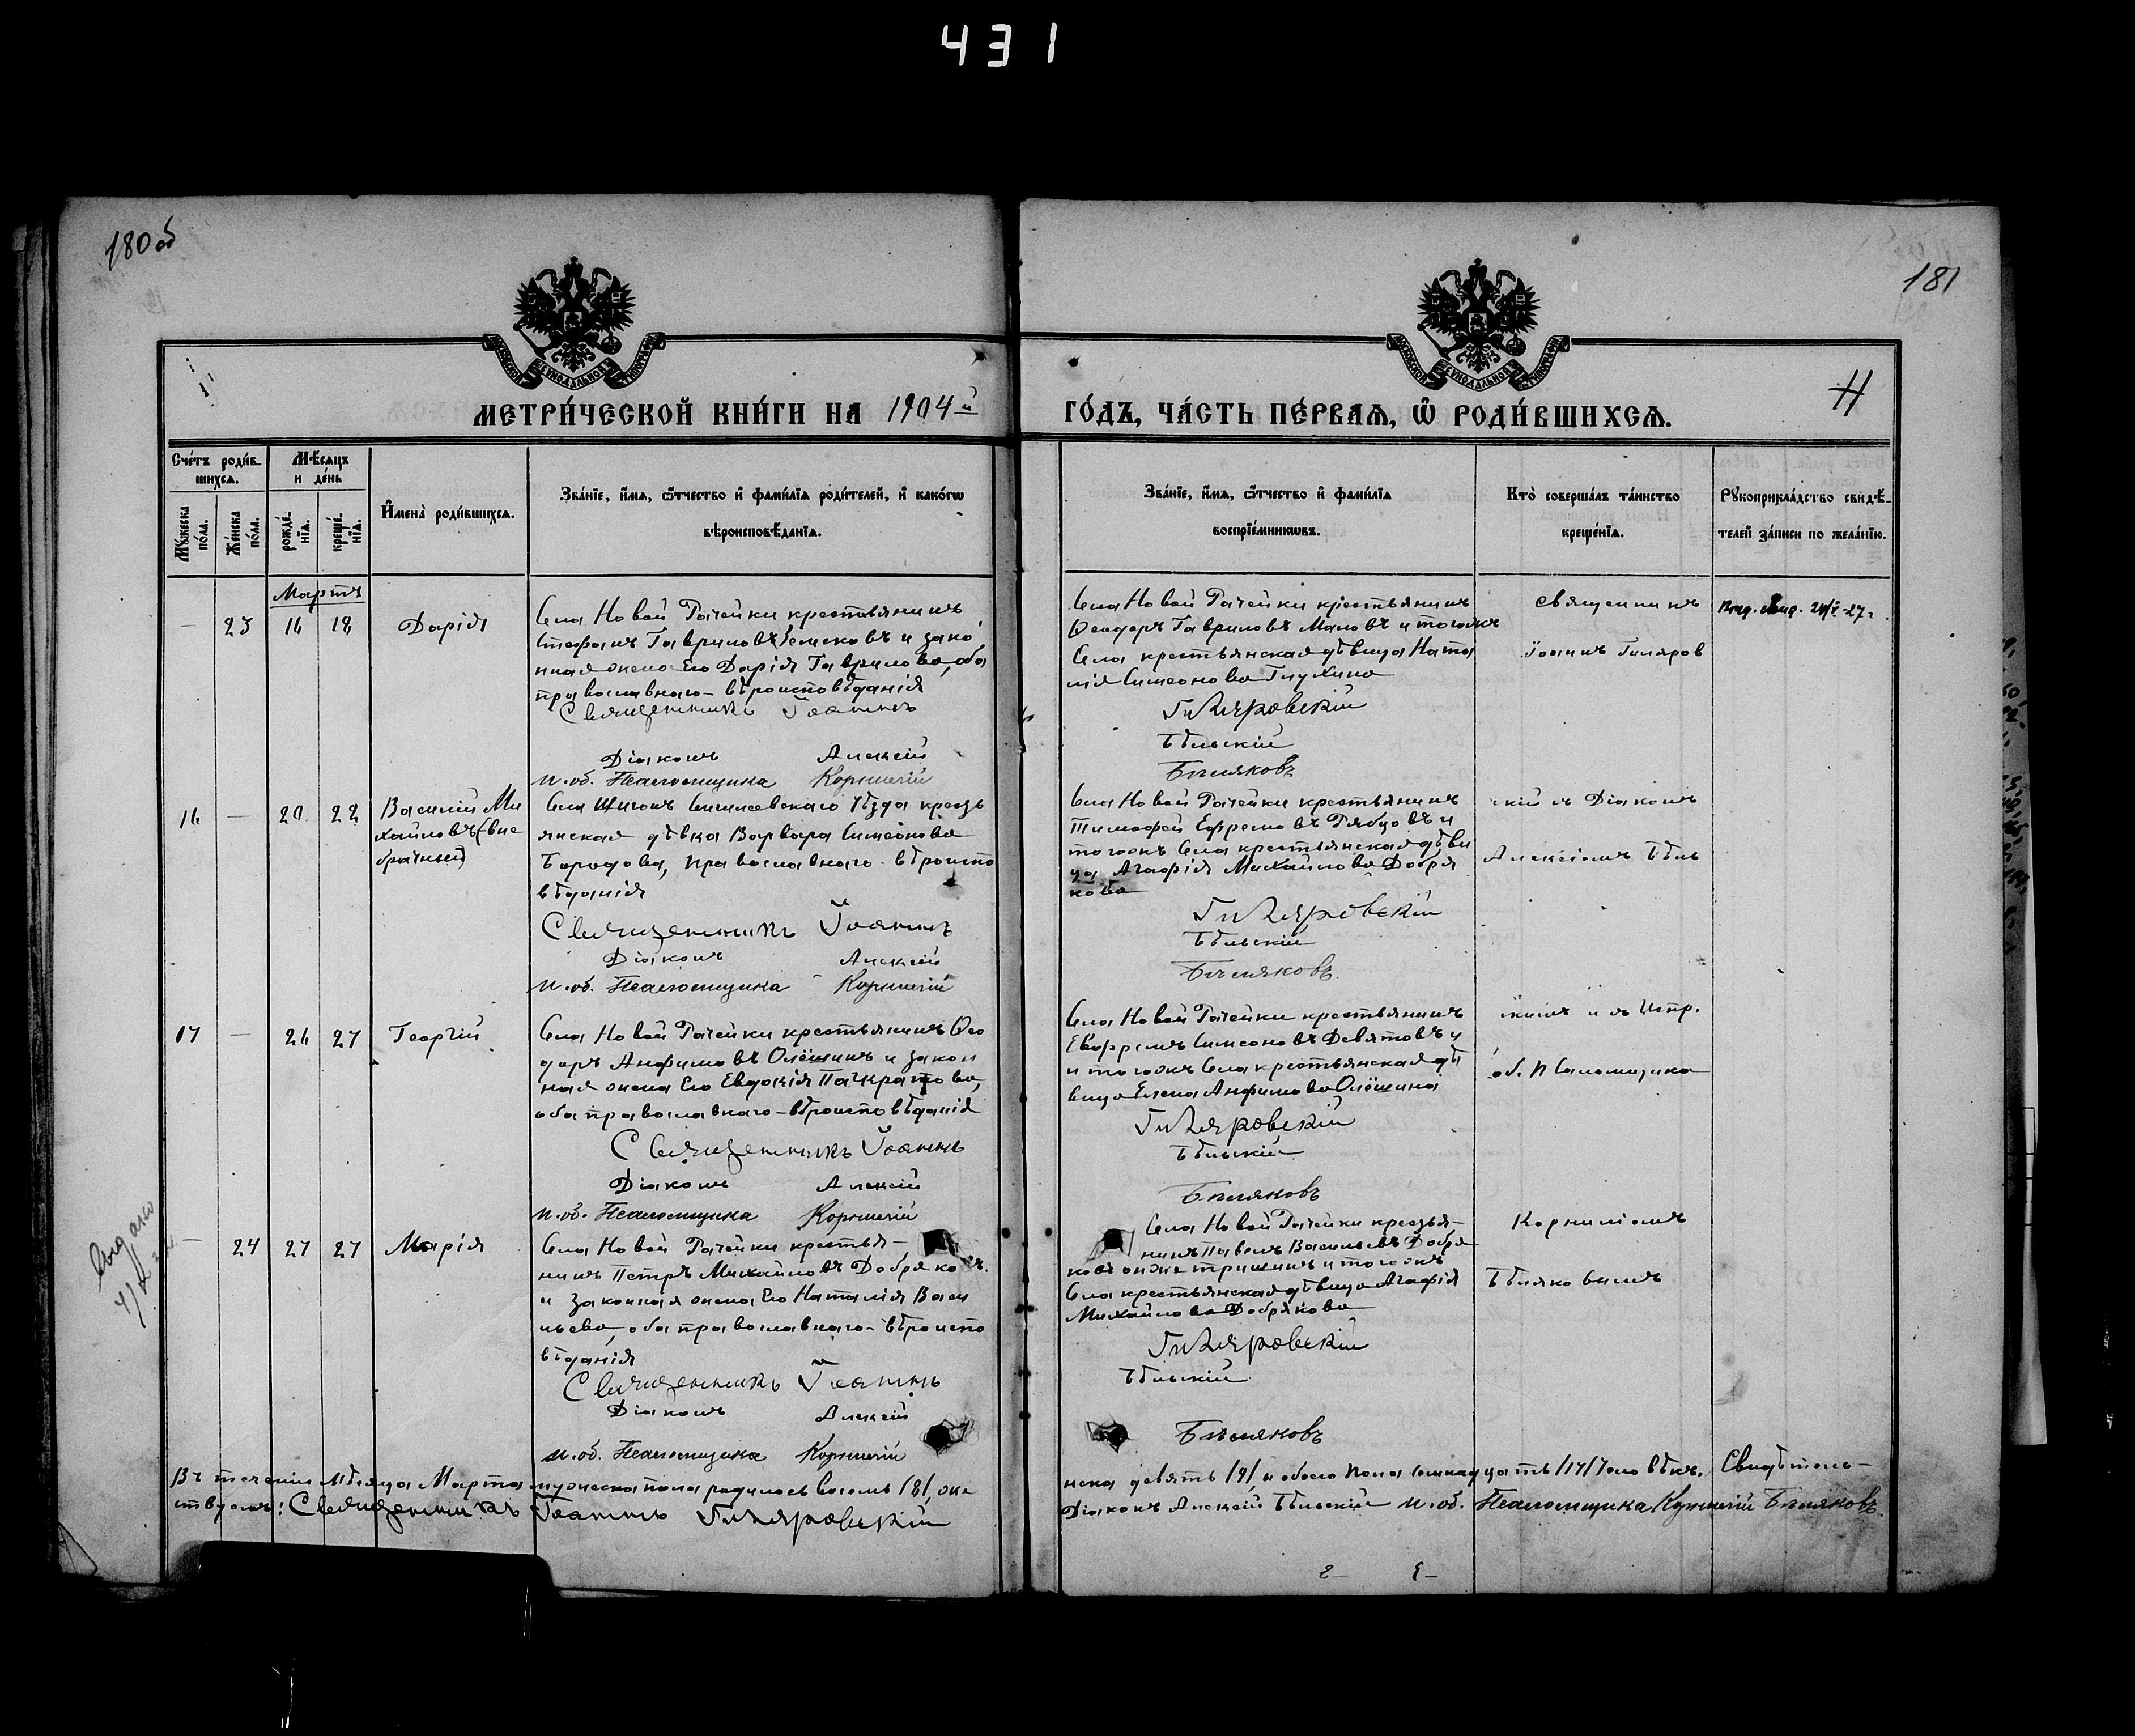 431
180 об
181
МЕТРИ́ЧЕСКОЙ КНИ́ГИ НА 1904й
ГО́ДЪ, ЧА́СТЬ ПЕ́РВАѦ, Ѡ҆ РОДИ́ВШИХСѦ.
11
Сче́тъ роди́в-
шихсѧ.
Мѣ́сѧцъ
и де́нь
Мꙋ́жеска
по́ла.
Же́нска
по́ла.
рожде́-
нїѧ.
креще́-
нїѧ.
И҆мена̀ роди́вшихсѧ.
Зва́нїе, и҆́мѧ, ѻ҆́тчество и҆ фами́лїѧ роди́телей, и҆ како́гѡ
вѣроисповѣ́данїѧ.
Зва́нїе, и҆́мѧ, ѻ҆́тчество и҆ фами́лїѧ
воспрїе́мникѡвъ.
Кто̀ соверша́лъ та́инство
креще́нїѧ.
Рꙋкоприкла́дство свидѣ́-
телей за́писи по жела́нїю.
Мартъ
— 23 16 18 Дарія
Села Новой Рачейки крестьянинъ
Стефанъ Гавриловъ и зако
нная жена Его Дарія Гаврилова, оба
православнаго-вѣроисповѣданія
Священникъ Іоаннъ
Діаконъ Алексій
и.об. Псаломщика Корнилій
Села Новой Рачейки крестьянинъ
Ѳеодоръ Гавриловъ Маловъ и тогожъ
Села крестьянская дѣвица Ната
лія Симеонова Глухина
Гиляровскій
Бѣльскій
Бѣляковъ
Священникъ
Іоаннъ Гиляров
16 — 20 22 Василій Ми
хайловъ (вне
брачный)
Села Сызранскаго Уѣзда кресть
янская дѣвка Варвара Симеонова
Бородова, православнаго-вѣроиспо
вѣданія
Священникъ Іоаннъ
Діаконъ Алексій
и.об. Псаломщика Корнилій
Села Новой Рачейки крестьянинъ
Тимофей Ефремовъ Рябцовъ и
тогожъ Села крестьянская дѣви
ца Агафія Михайлова Добря
кова
Гиляровскій
Бѣльскій
Бѣляковъ
скій съ Діаконъ
Алексіемъ Бѣль
17 — 26 27 Георгій
Села Новой Рачейки крестьянинъ Ѳео
доръ Анфимовъ Олёшинъ и закон
ная жена Его Евдокія Панкратова,
оба православнаго-вѣроисповѣданія
Священникъ Іоаннъ
Діаконъ Алексій
и.об. Псаломщика Корнилій
Села Новой Рачейки крестьянинъ
Евфремъ Симеоновъ Девятовъ и
и тогожъ Села крестьянская дѣ
вица Елена Анфимова Олёшина
Гиляровскій
Бѣльскій
Бѣляковъ
скимъ и съ Испр.
об. Псаломщика
— 24 27 27 Марія
Села Новой Рачейки кресть я-
нинъ Петръ Михайловъ Добряковъ
и законная жена Его Наталія Васи
льева, оба православнаго-вѣроиспо
вѣданія
Священникъ Іоаннъ
Діаконъ Алексій
и.об. Псаломщика Корнилій
Села Новой Рачейки крестья-
нинъ Павелъ Васильевъ Добря
ковъ онже Гришинъ и тогожъ
Села крестьянская дѣвица Агафія
Михайлова Добрякова
Гиляровскій
Бѣльскій
Бѣляковъ
Корниліемъ
Бѣляковымъ
Выдано
Въ теченіи мѣсяца Марта мужеска пола родилось восемь /8/, же
нска девять /9/, и обоего пола семнадцать /17/ человѣкъ. Свидѣтель-
ствуемъ: Священникъ Іоаннъ Гиляровскій
Діаконъ Алексій Бѣльскій и.об. Псаломщика Корнилій Бѣляковъ